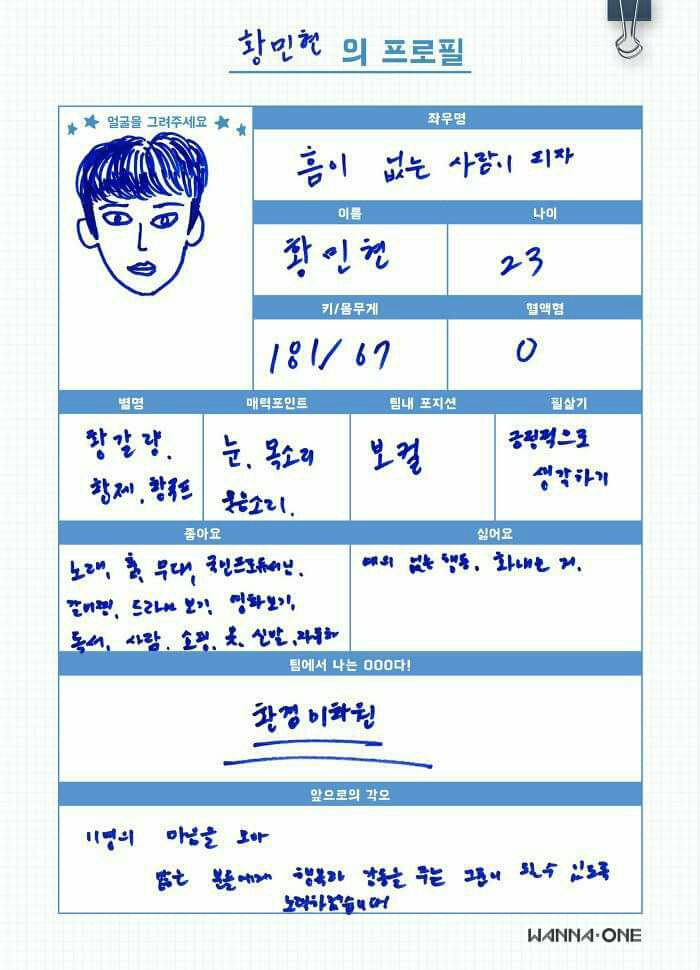 황민현 의 프로필
얼굴을 그려주세요
좌우명
흠이 없는 사람이 되자
이름
나이
황민현
23
키/몸무게
혈액형
181/67
O
별명
매력포인트
팀내 포지션
필살기
황갈량,
황제, 황국프
눈, 목소리
웃음소리.
보컬
긍정적으로
생각하기
좋아요
싫어요
노래, 춤, 무대, 국민프로듀서님,
갈비찜, 드라마 보기, 영화보기,
독서, 사람, 쇼핑, 옷, 신발, 자동차
예의 없는 행동, 화내는 거.
팀에서 나는 OOO다!
환경미화원
앞으로의 각오
11명의 마음을 모아
많은 분들에게 행복과 감동을 주는 그룹이 될 수 있도록
노력하겠습니다
WANNA·ONE